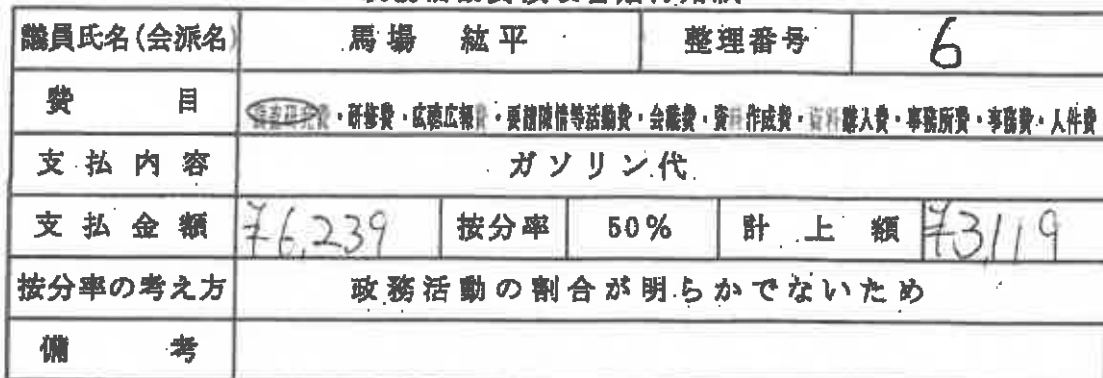 議員氏名(会派名) 馬場 紘平 整理番号 6
費目 調査研究費・研修費・広聴広報費・要請陳情等活動費・会議費・資料作成費・資料購入費・事務所費・事務費・人件費
支払内容 ガソリン代
支払金額 ¥6,239 按分率 50% 計上額 ¥3,119
按分率の考え方 政務活動の割合が明らかでないため
備考